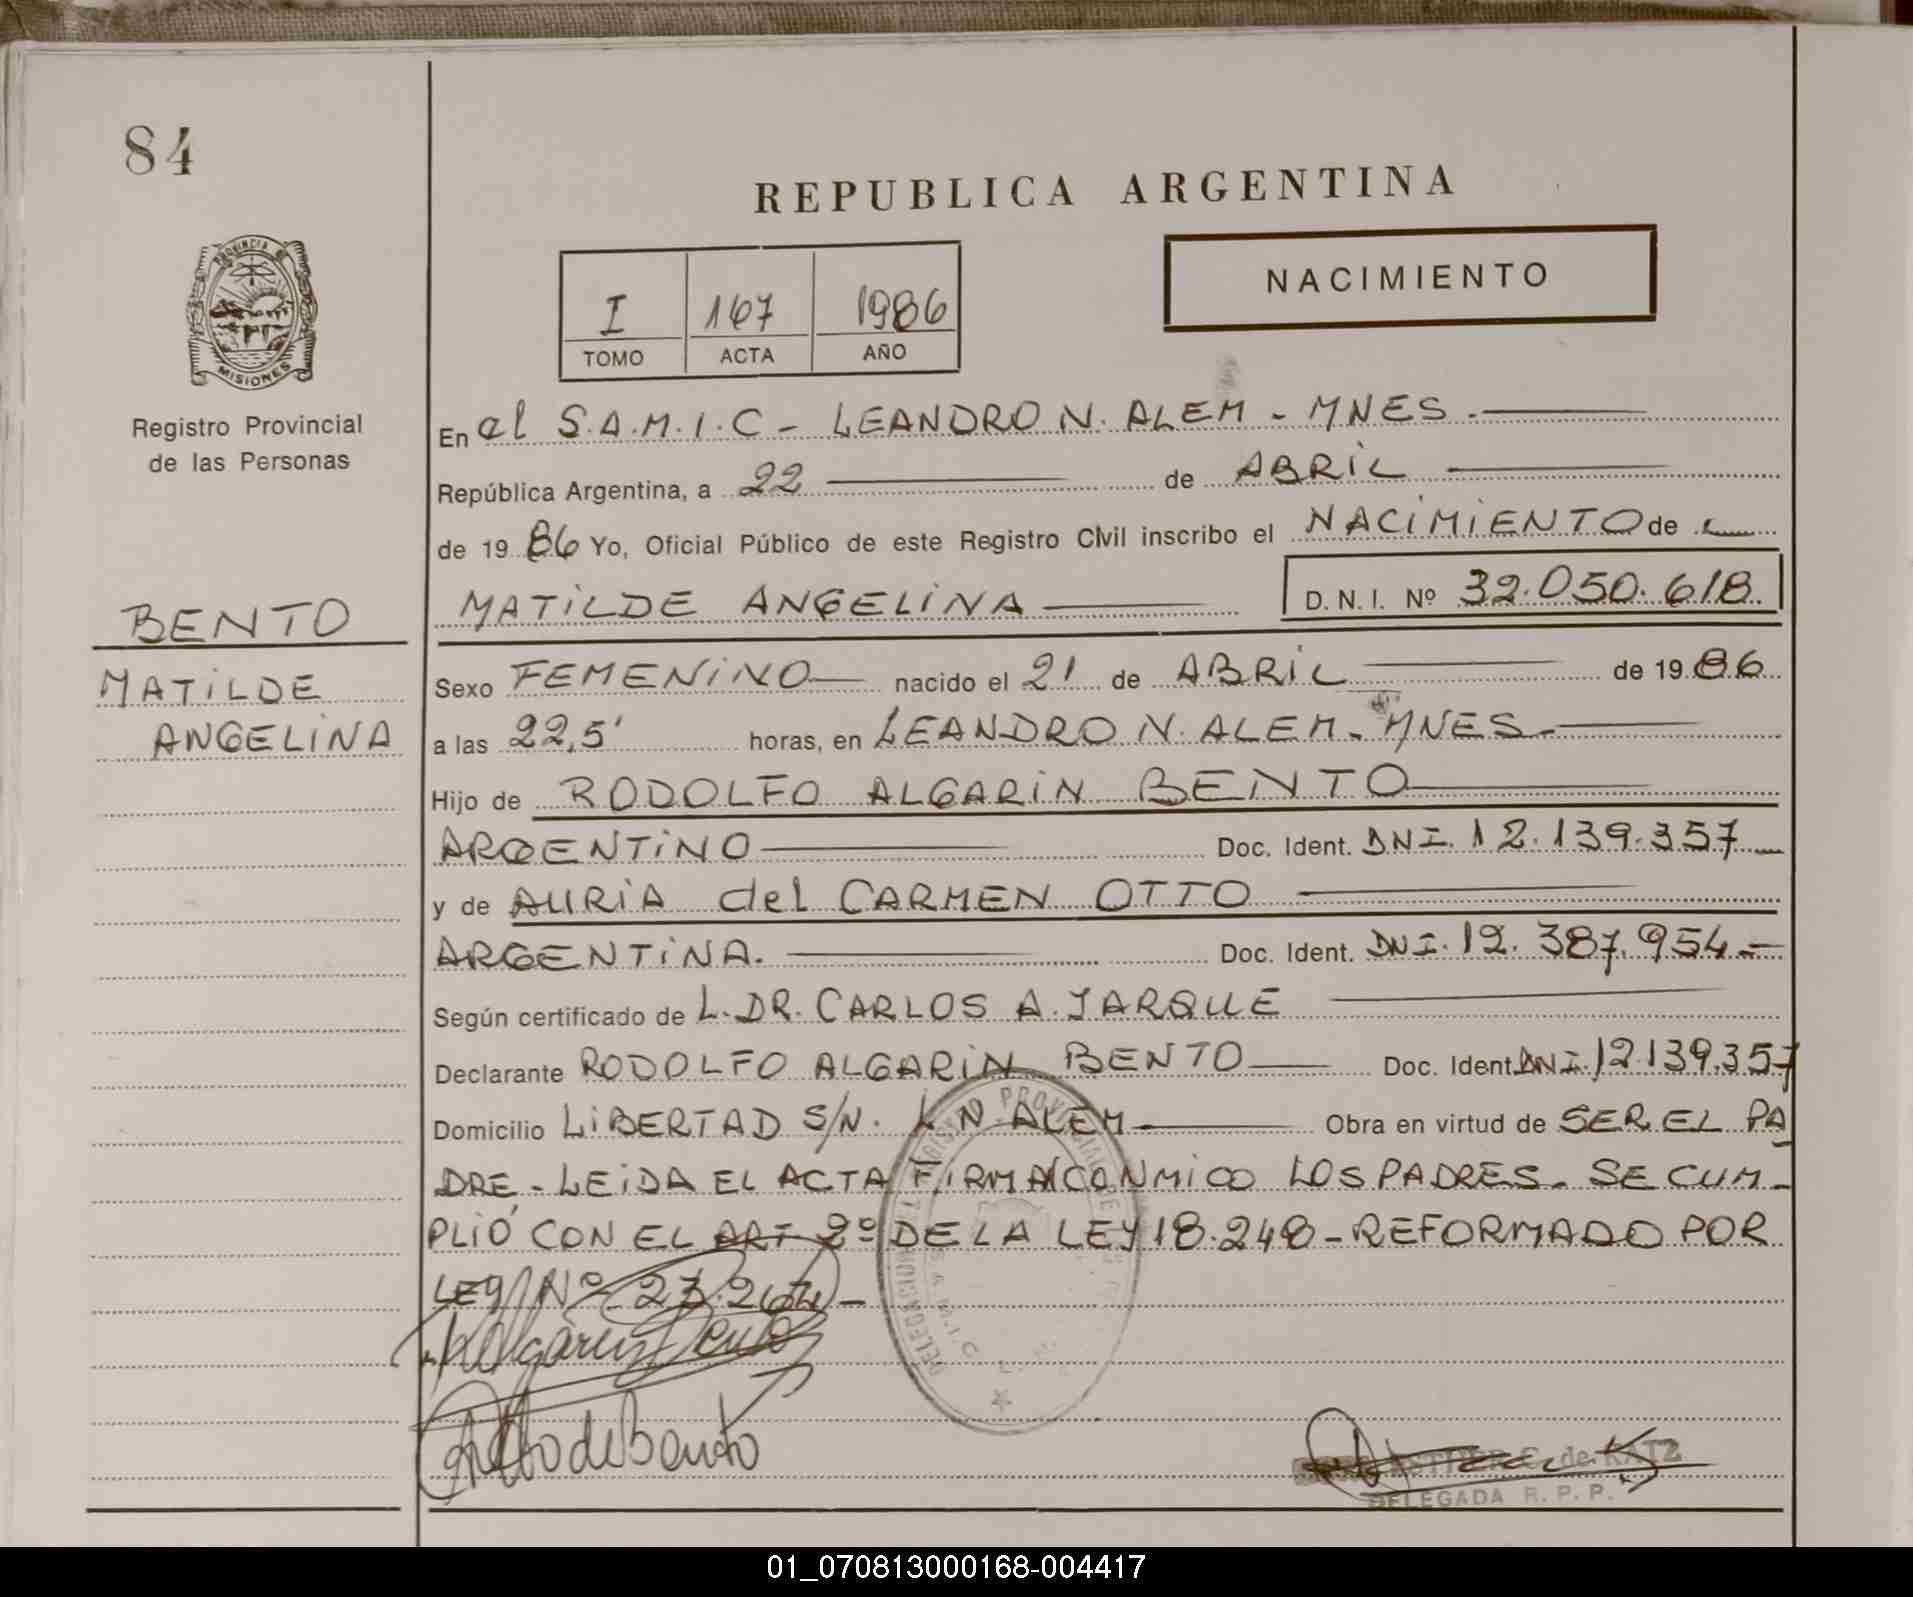 84
REPUBLICA ARGENTINA
NACIMIENTO
I 167 1986
TOMO ACTA AÑO
PROVINCIA DE
MISIONES
Registro Provincial
de las Personas
BENTO
MATILDE
ANGELINA
En el S.A.M.I.C - LEANDRO N. ALEM - MNES.-
República Argentina, a 22 de ABRIL
de 1986 Yo, Oficial Público de este Registro Civil inscribo el NACIMIENTO de
MATILDE ANGELINA D. N. I. Nº 32.050.618
Sexo FEMENINO nacido el 21 de ABRIL de 1986
a las 22,5' horas, en LEANDRO N. ALEM - MNES-
Hijo de RODOLFO ALGARIN BENTO
ARGENTINO Doc. Ident. DNI. 12.139.357
y de AURIA del CARMEN OTTO
ARGENTINA. Doc. Ident. DNI. 12.387.954.-
Según certificado de L. DR. CARLOS A. JARQUE
Declarante RODOLFO ALGARIN BENTO Doc. Ident. DNI. 12.139.357
Domicilio LIBERTAD S/N. L N. ALEM Obra en virtud de SER EL PA
DRE - LEIDA EL ACTA FIRMA CONMIGO LOS PADRES. SE CUM-
PLIÓ CON EL ART 2º DE LA LEY 18.248 - REFORMADO POR
LEY Nº 23.264 -
Algarin Bento
Otto de Bento
de KATZ
DELEGADA R. P. P.
01_070813000168-004417